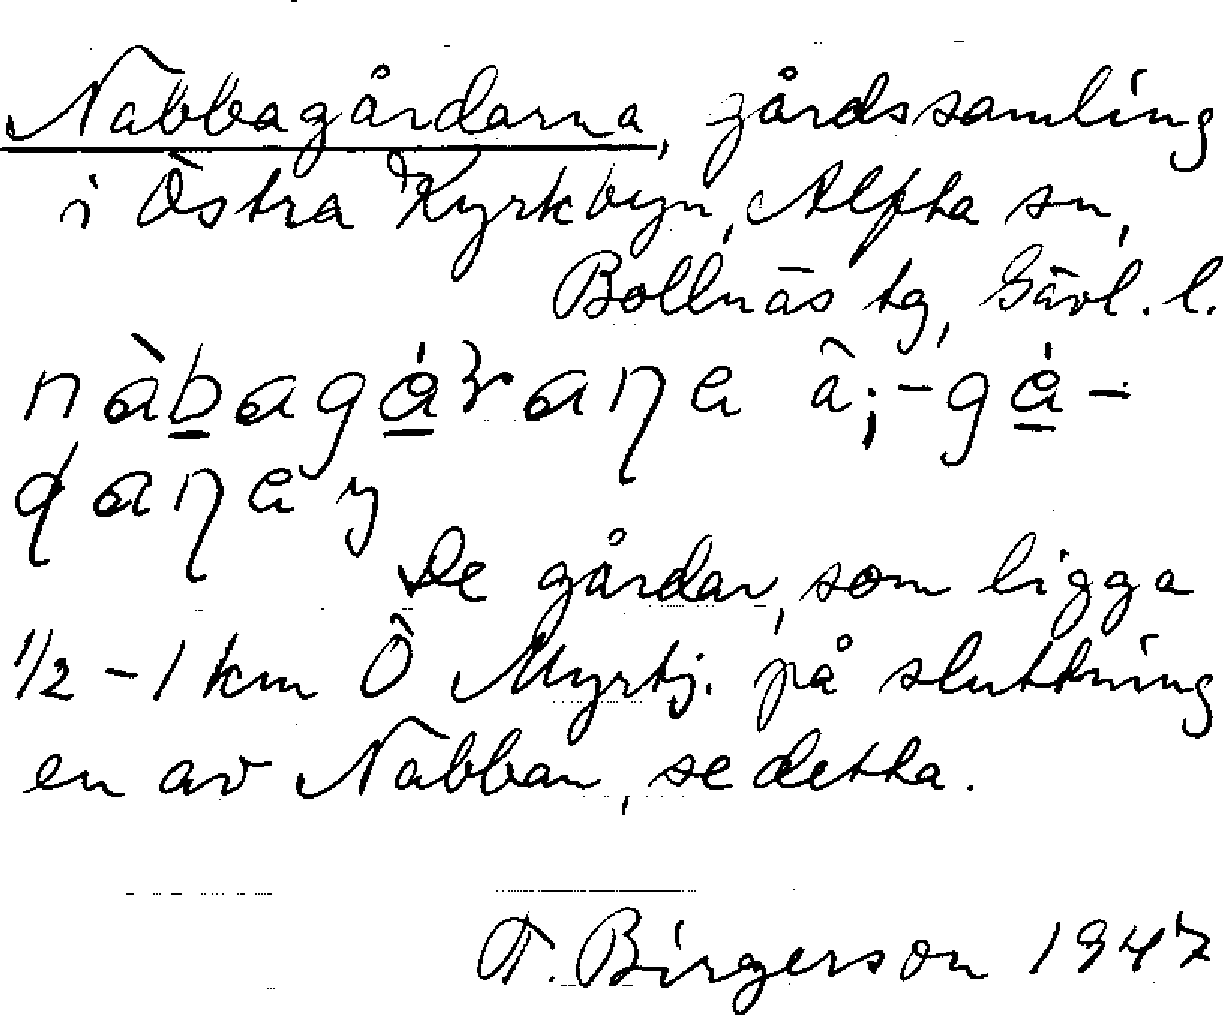 Nabbagårdarna, gårdssamling
i Östra Kyrkbyn, Alfta sn,
Bollnäs tg, Gävl. l.
De gårdar, som ligga
1/2 – 1 km Ö Myrtj. på sluttning
en av Nabban, se detta.
T. Birgerson 1947